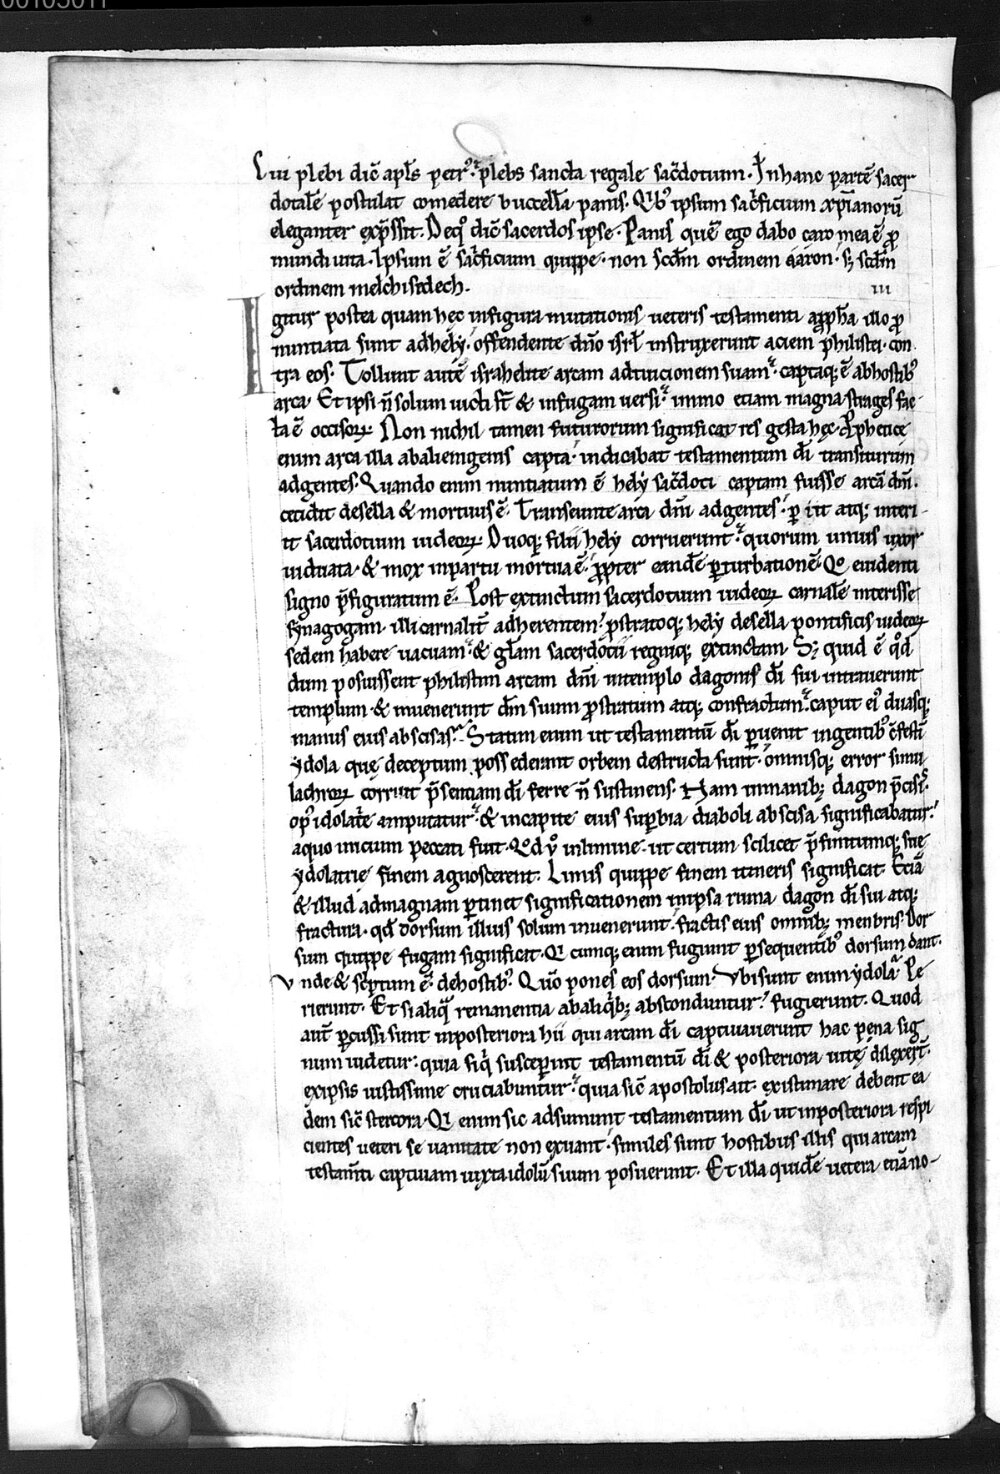 Cui plebi dic̄ apl̄s petr᷒. plebs sancta regale sac̄dotium. In hanc partē sacer
dotalē postulat comedere buccellā panis. Qib᷒ ipsum sac̄ficium xp̄ianorū
eleganter exp̄ssit. De q᷒ dic̄ sacerdos ipse. Panis quē ego dabo caro mea ē p̄
mundi uita. Ipsum ē sac̄ficium quippe. non scd̄m ordinem aaron. s; scd̄m
ordinem melchisedech.
iii
Igitur postea quam hęc in figura mutationis ueteris testamenti a ꝓph̄a illo p̄
nuntiata sunt ad hely. offendente dn̄o isrl̄ instruxerunt aciem philistei con
tra eos. Tollunt autē israhelite arcam ad tuicionem suam. captaq; ē ab hostib᷒
arca. Et ipsi n̄ solum uicti st̄ & in fugam uersi. immo etiam magna strages fac
ta ē occisoꝝ. Non nichil tamen futurorum significat res gesta hęc. Prophetice
enim arca illa ab alienigenis capta. indicabat testamentum dī transiturum
ad gentes. Quando enim nuntiatum ē hely sac̄doti captam fuisse arcā dn̄i.
cecidit de sella & mortuus ē. Transeunte arca dn̄i ad gentes. periit atq; interi-
it sacerdotium iudeoꝝ. Duoq; filii hely corruerunt. quorum unius uxor
uiduata. & mox in partu mortua ē. ꝓpter eandē ꝑturbationē. Qo euidenti
signo p̄figuratum ē. Post extinctum sacerdotium iudeoꝝ carnalē interisse
synagogam. illi carnalit̄ adherentem. prostratoq; hely de sella pontificis iudeoꝝ
sedem habere uacuam. & glām sacerdotii regniq; extinctam. S; quid ē qd̄
dum posuissent philistini arcam dn̄i in templo dagonis dī sui intrauerunt
templum. & inuenerunt dm̄ suum prostratum atq; confractum. caput ei᷒ duasq;
manus eius abscisas. Statim enim ut testamentū dī ꝑuenit in gentib᷒ c̄festī
ydola quę deceptum possederant orbem destructa sunt. omnisq; error simu
lachroꝝ corruit p̄sentiam dī ferre n̄ sustinens. Nam in manib; dagon p̄cisis.
op᷒ idolat̄e amputatur. & in capite eius suꝑbia diaboli abscisa significabatur.
a quo inicium peccati fuit. Qd̄ ỏ in limine. ut certum scilicet p̄finitumq; sue
ydolatrie finem agnosterent. Limis quippe finem itineris significat. Etiā
& illud ad magnam ꝑtinet significationem in ipsa ruina dagon dī sui atq;
fractura. qd̄ dorsum illius solum inuenerunt. fractis eius omnib; menbris. Dor
sum quippe fugam significat. Qicumq; enim fugiunt ꝑsequentib᷒ dorsum dant.
Vnde & sc̄ptum ē. de hostib᷒. Quō pones eos dorsum. Vbi sunt enim ydola. Pe
rierunt. Et si aliq̄ remanentia ab aliq̄b; absconduntur. fugierunt. Quod
aut̄ ꝑcussi sunt in posteriora hii qui arcam dī captiuauerunt hac pena sig
num uidetur. quia siq̄ susceꝑint testamentū dī & posteriora uitę dilexer̄t.
ex ipsis iustissime cruciabuntur. quia sic̄ apostolus ait. existimare debent ea
dem sic̄ stercora. Qi enim sic adsumunt testamentum dī ut in posteriora respi
cientes ueteri se uanitate non exuant. similes sunt hostibus illis qui arcam
testam̄ti captiuam iuxta idolū suum posuerunt. Et illa quidē uetera etiā no-